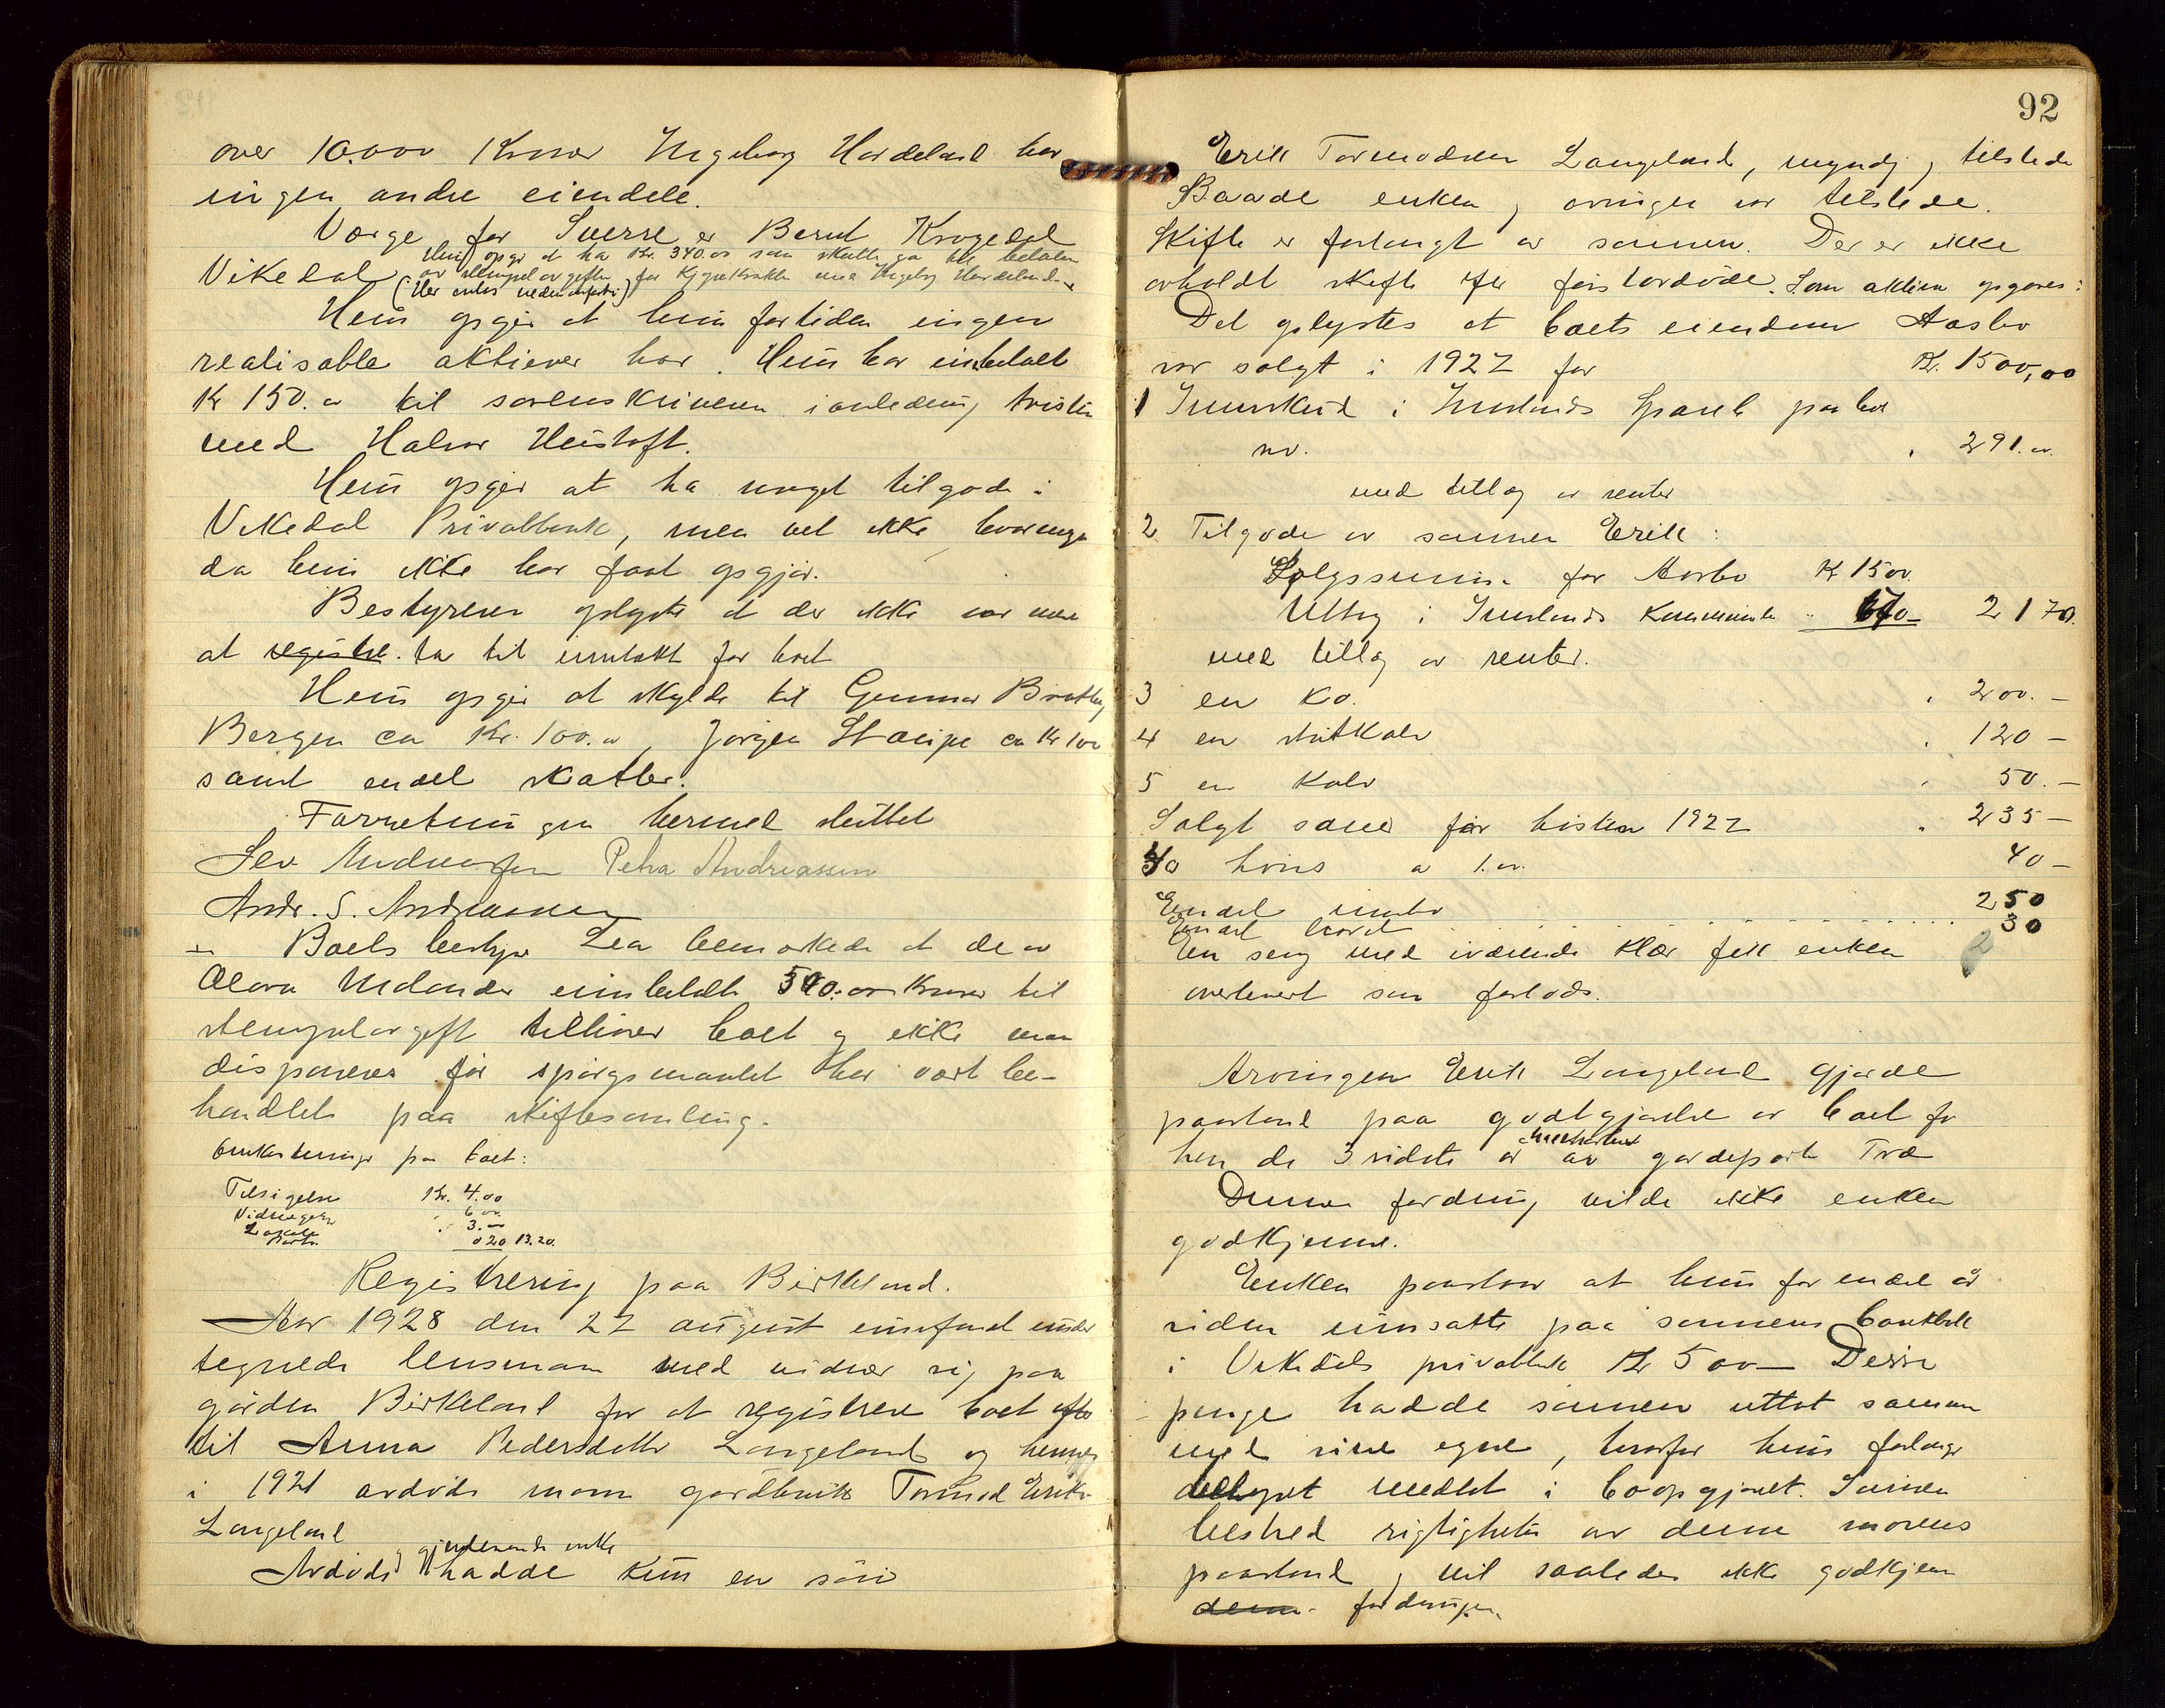 over 10.000 Kroner Ingeborg Hardeland har
ingen andre eiendele.
Værge for Sverre er Bernt Krogedal
Vikedal
Hun opgir at ha Kr. 340.00 som skulle gaa til betaling
av stempelavgiften for Kjøpekontrakten med Ingeborg Hardeland.
Hun opgir at hun for tiden ingen
realisable aktiver har. Hun har indbetalt
Kr 150.00 til sorenskriveren i anledning tvisten
med Halvor
Hun opgir at ha noget tilgode i
Vikedal Privatbank, men vet ikke hvormeget
da hun ikke har faat opgjør.
Bestyreren oplyste at der ikke var mere
at registre. ta til inntekt for boet
Hun opgir at skylde til Gunnar
Bergen ca Kr. 100.00, Jørgen ca Kr 100
samt endel skatter.
Forretningen hermed sluttet
Petra Andreassen
Andr. S. Andreassen
Boets bestyrer Lea bemerkede at de av
Olava innbetalte kroner til
stempelavgift tilhører boet og ikke maa
disponeres før spørgsmaalet har vært be-
handlet paa skiftesamling.
paa boet:
Tilsigelse Kr. 4.00
6.00
Lokale 3.-
Porto 0 20 13.20
Registrering paa Birkeland.
Aar 1928 den 22 august innfandt under
tegnede lensmann med vidner sig paa
gården Birkeland for at registrere boet efter
til Anna Pedersdatter Langeland og hennes
i 1921 avdøde mann gardbruker Tormod Eriks.
Langeland
Avdøde og gjenlevende enke hadde kun en søn
92
Erik Tormodsen Langeland, myndig, tilstede
Baade enken og arvingen var tilstede.
Skifte er forlangt av sønnen. Der er ikke
avholdt skifte efter førstavdøde. Som aktiva opgaves:
Det oplystes at boets eiendom Aasbø
var solgt i 1922 for Kr. 1500,00
1 Innskud i Imslands Spareb. paa bok
nr. 291.00
med tillæg av renter
2 Tilgode av sønnen Erik:
Salgssum for Aasbø Kr 1500.
Uttag i Imslands Kommune 670- 2170.
med tillæg av renter.
3 en ko. 200.-
4 en 120 -
5 en kalv 50.-
Solgt sauer før høsten 1922 235-
40 høns a 1.00 40-
Endel innbo 250
Endel 30
En seng med iværende klær fik enken
overlevert som forlods.
Arvingen Erik Langeland gjorde
paastand paa godtgjørelse av boet for
hen de 3 sidste år av gardeparten Træ
Denne fordring vilde ikke enken
godkjenne.
Enken paastaar at hun for endel år
siden innsatte paa sønnens bankbok
i Vikedals privatbank Kr 500- Disse
penge hadde sønnen uttat sammen
med sine egne, hvorfor hun forlanger
beløpet medtat i boopgjøret. Sønnen
bestred rigtigheten av denne morens
paastand og vil saaledes ikke godkjenne
denne fordringen.